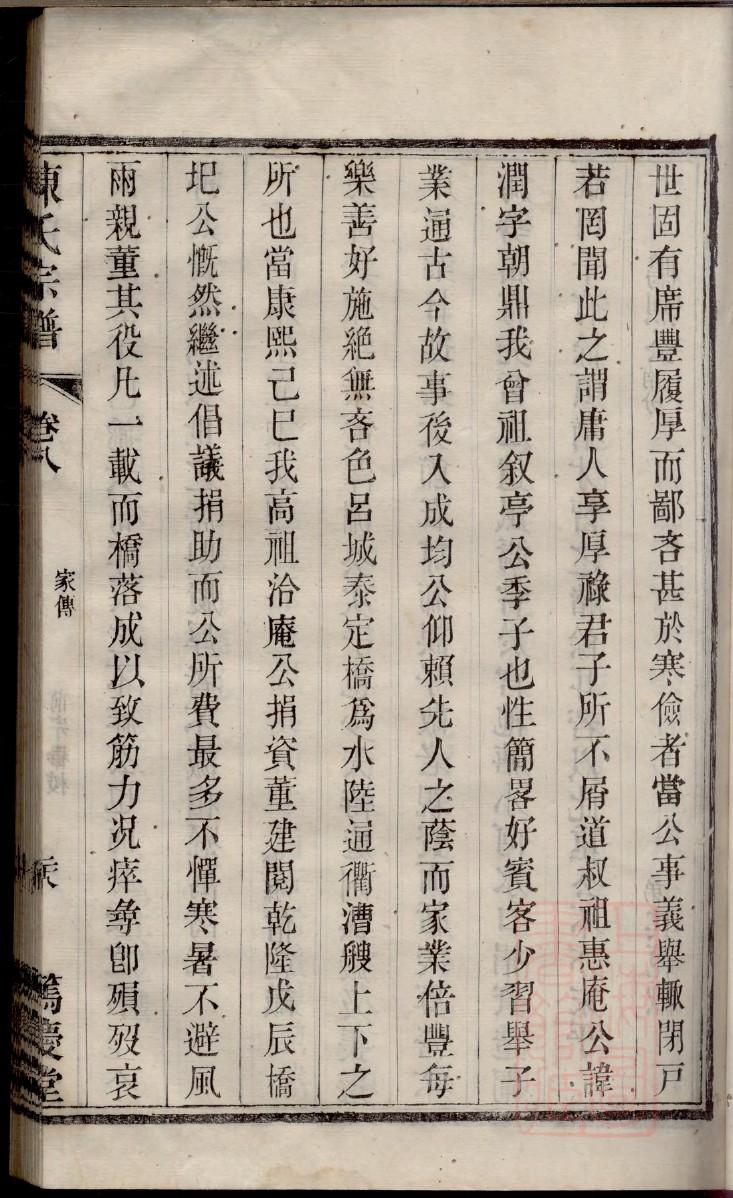 世固有席豐履厚而鄙吝甚於寒儉者當公事義舉輙閉戸
若罔聞此之謂庸人享厚祿君子所不屑道叔祖惠庵公諱
潤字朝鼎我曾祖叙亭公季子也性簡畧好賓客少習舉子
業通古今故事後入成均公仰賴先人之蔭而家業倍豐每
樂善好施絶無吝色呂城泰定橋爲水陸通衢漕艘上下之
所也當康熙己巳我高祖洽庵公捐資董建閱乾隆戊辰橋
圯公慨然繼述倡議捐助而公所費最多不憚寒暑不避風
雨親董其役凡一載而橋落成以致筋力况瘁尋卽殞歿哀
陳氏宗譜
卷八
家傳
篤慶堂